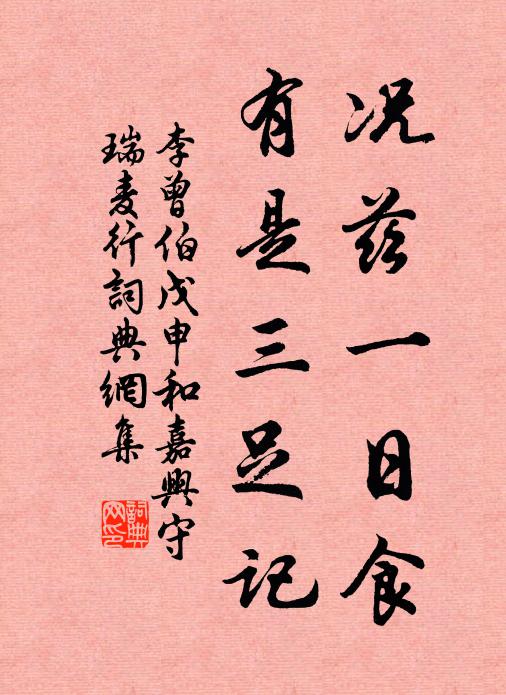 况兹一日食
有是三足记
李曾伯戊申和嘉興守
瑞麦行詞典網集
詞典
网印